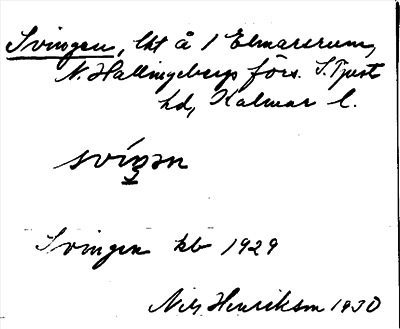 Svingen, lht å 1 Elmarsrum,
N. Hallingebergs förs. S. Tjust
hd, Kalmar l.
svíŋən
Svingen kb 1929
Nils Henriksson 1930